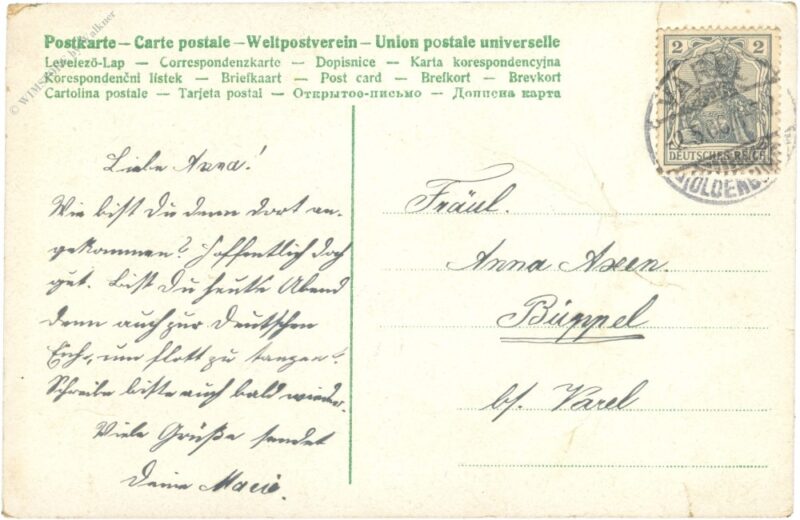 Postkarte – Carte postale – Weltpostverein – Union postale universelle
Levelező-Lap — Correspondenzkarte — Dopisnice — Karta korespondencyjna
Korespondenční lístek — Briefkaart — Post card — Brefkort — Brevkort
Cartolina postale — Tarjeta postal — Открытое-письмо — Дописна карта
Liebe Anna!
Wie bist Du denn dort an-
gekommen? Hoffentlich doch
gut. Bist Du heute Abend
denn auch zur Deutschen
Eiche, um flott zu tanzen?
Schreibe bitte auch bald wieder.
Viele Grüße sendet
Deine Marie.
2 2
DEUTSCHES REICH
VAREL
OLDENBURG
Fräul.
Anna Axen.
Büppel
bf. Varel